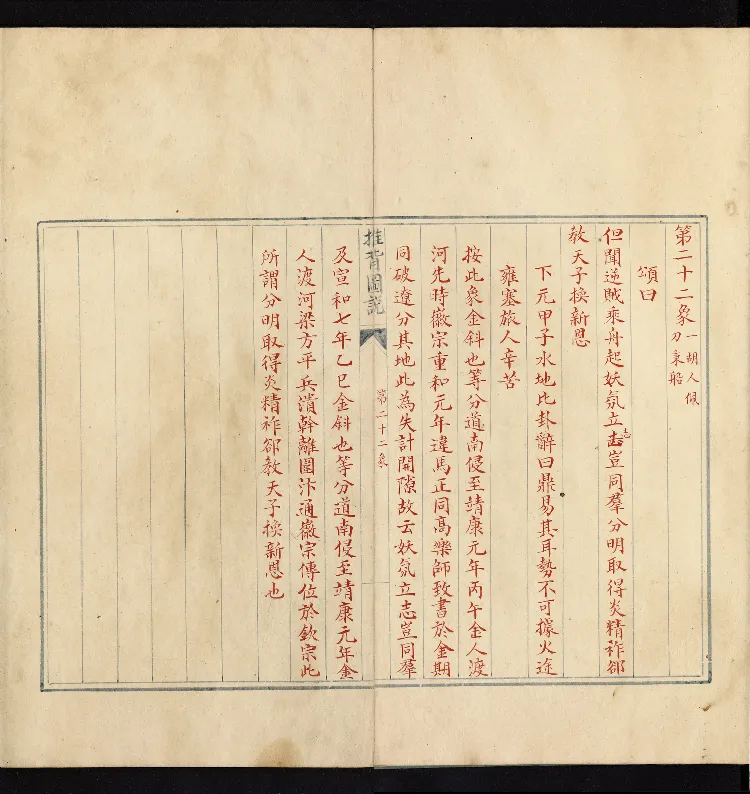 第二十二象 一胡人倚
刀乘船
頌曰
但聞逆賊乘舟起妖氛立志豈同羣分明取得炎精祚郤
教天子換新恩
下元甲子水地比卦辭曰鼎易其耳勢不可據火途
雍塞旅人辛苦
按此象金斜也等分道南侵至靖康元年丙午金人渡
河先時徽宗重和元年違馬正同高藥師致書於金期
同破遼分其地此為失計開隙故云妖氛立志豈同羣
推背圖說
第二十二象
及宣和七年乙巳金斜也等分道南侵至靖康元年金
人渡河梁方平兵潰幹離圍汴通徽宗傳位於欽宗此
所謂分明取得炎精祚郤教天子換新恩也